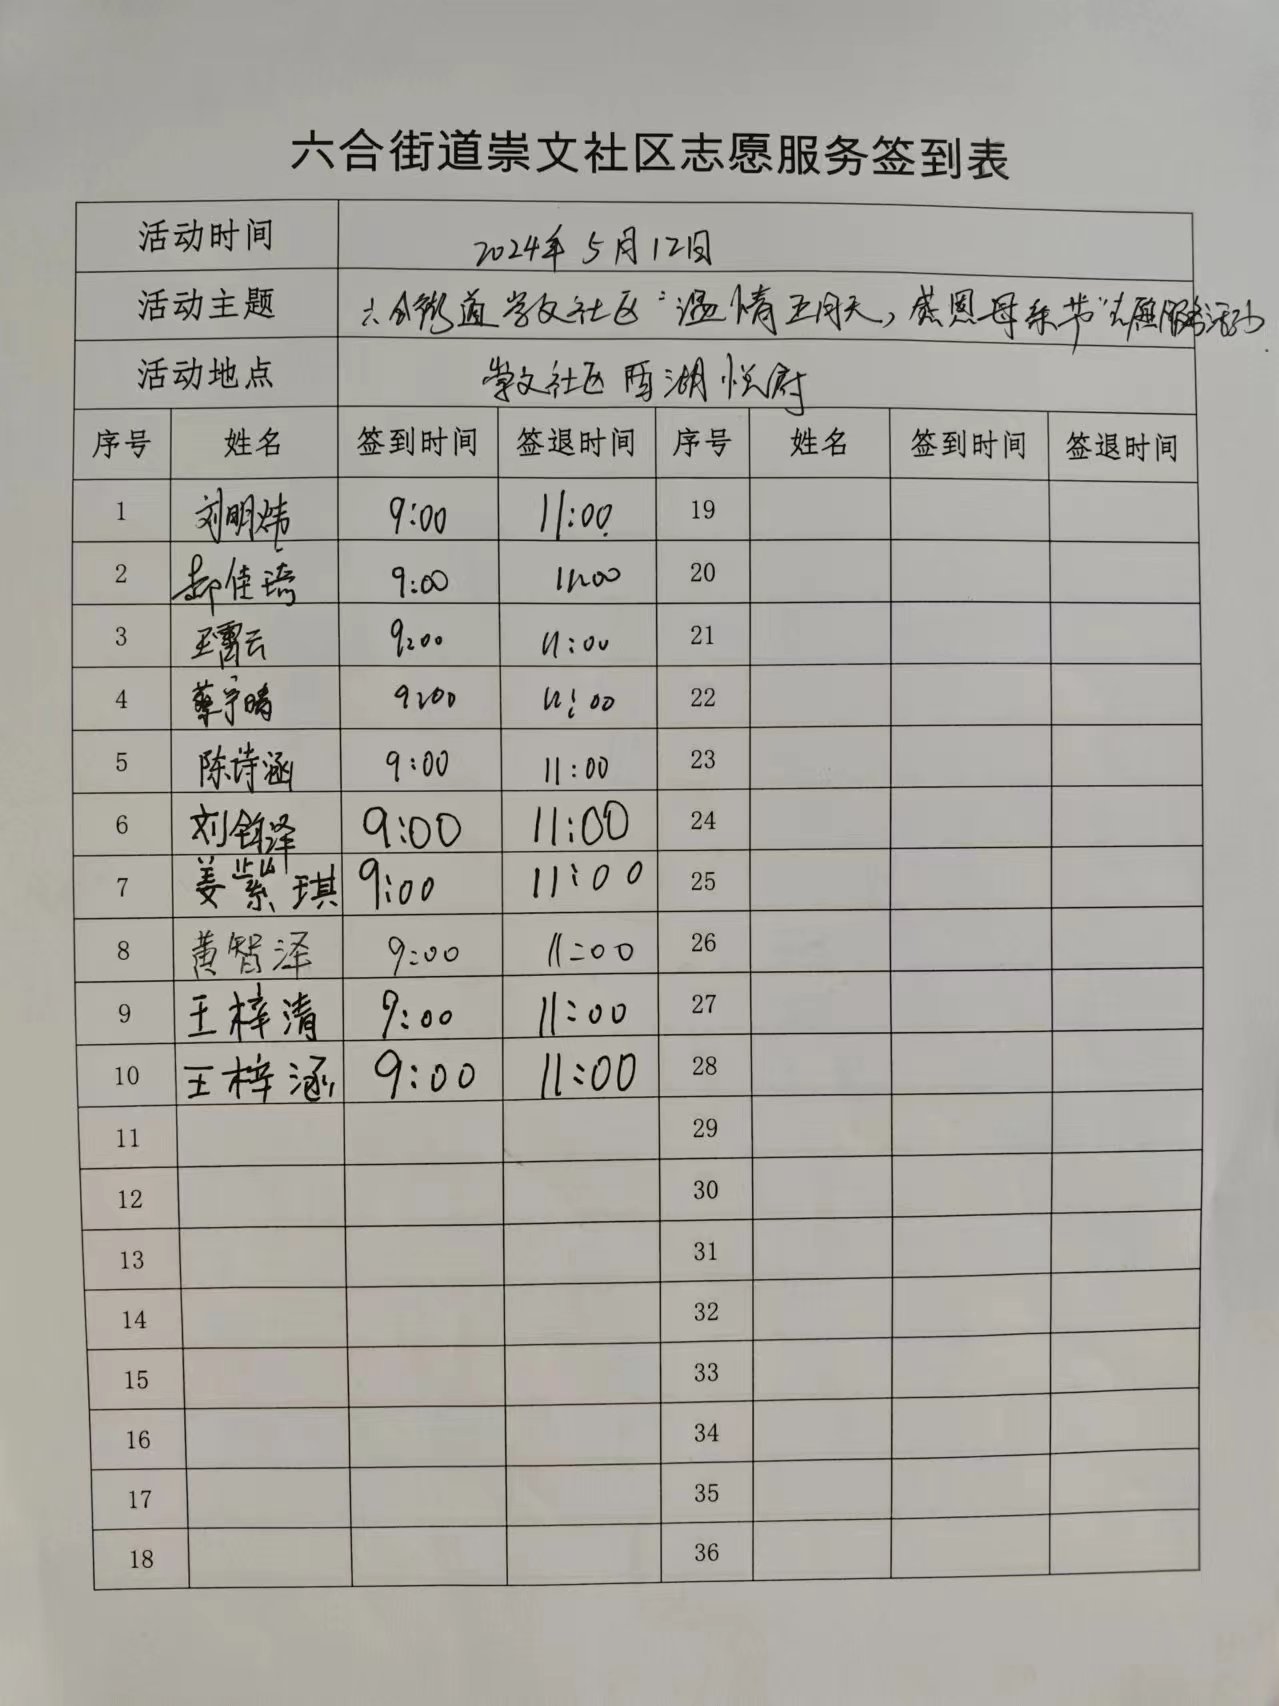 六合街道崇文社区志愿服务签到表
活动时间 2024年5月12日
活动主题 六合街道崇文社区“温情五月天，感恩母亲节”志愿服务活动
活动地点 崇文社区西湖悦府
序号 姓名 签到时间 签退时间 序号 姓名 签到时间 签退时间
1 刘明炜 9:00 11:00 19
2 郝佳琦 9:00 11:00 20
3 9:00 11:00 21
4 蔡宇晴 9:00 11:00 22
5 陈诗涵 9:00 11:00 23
6 刘锦泽 9:00 11:00 24
7 姜紫琪 9:00 11:00 25
8 黄智泽 9:00 11:00 26
9 王梓清 9:00 11:00 27
10 王梓涵 9:00 11:00 28
11 29
12 30
13 31
14 32
15 33
16 34
17 35
18 36